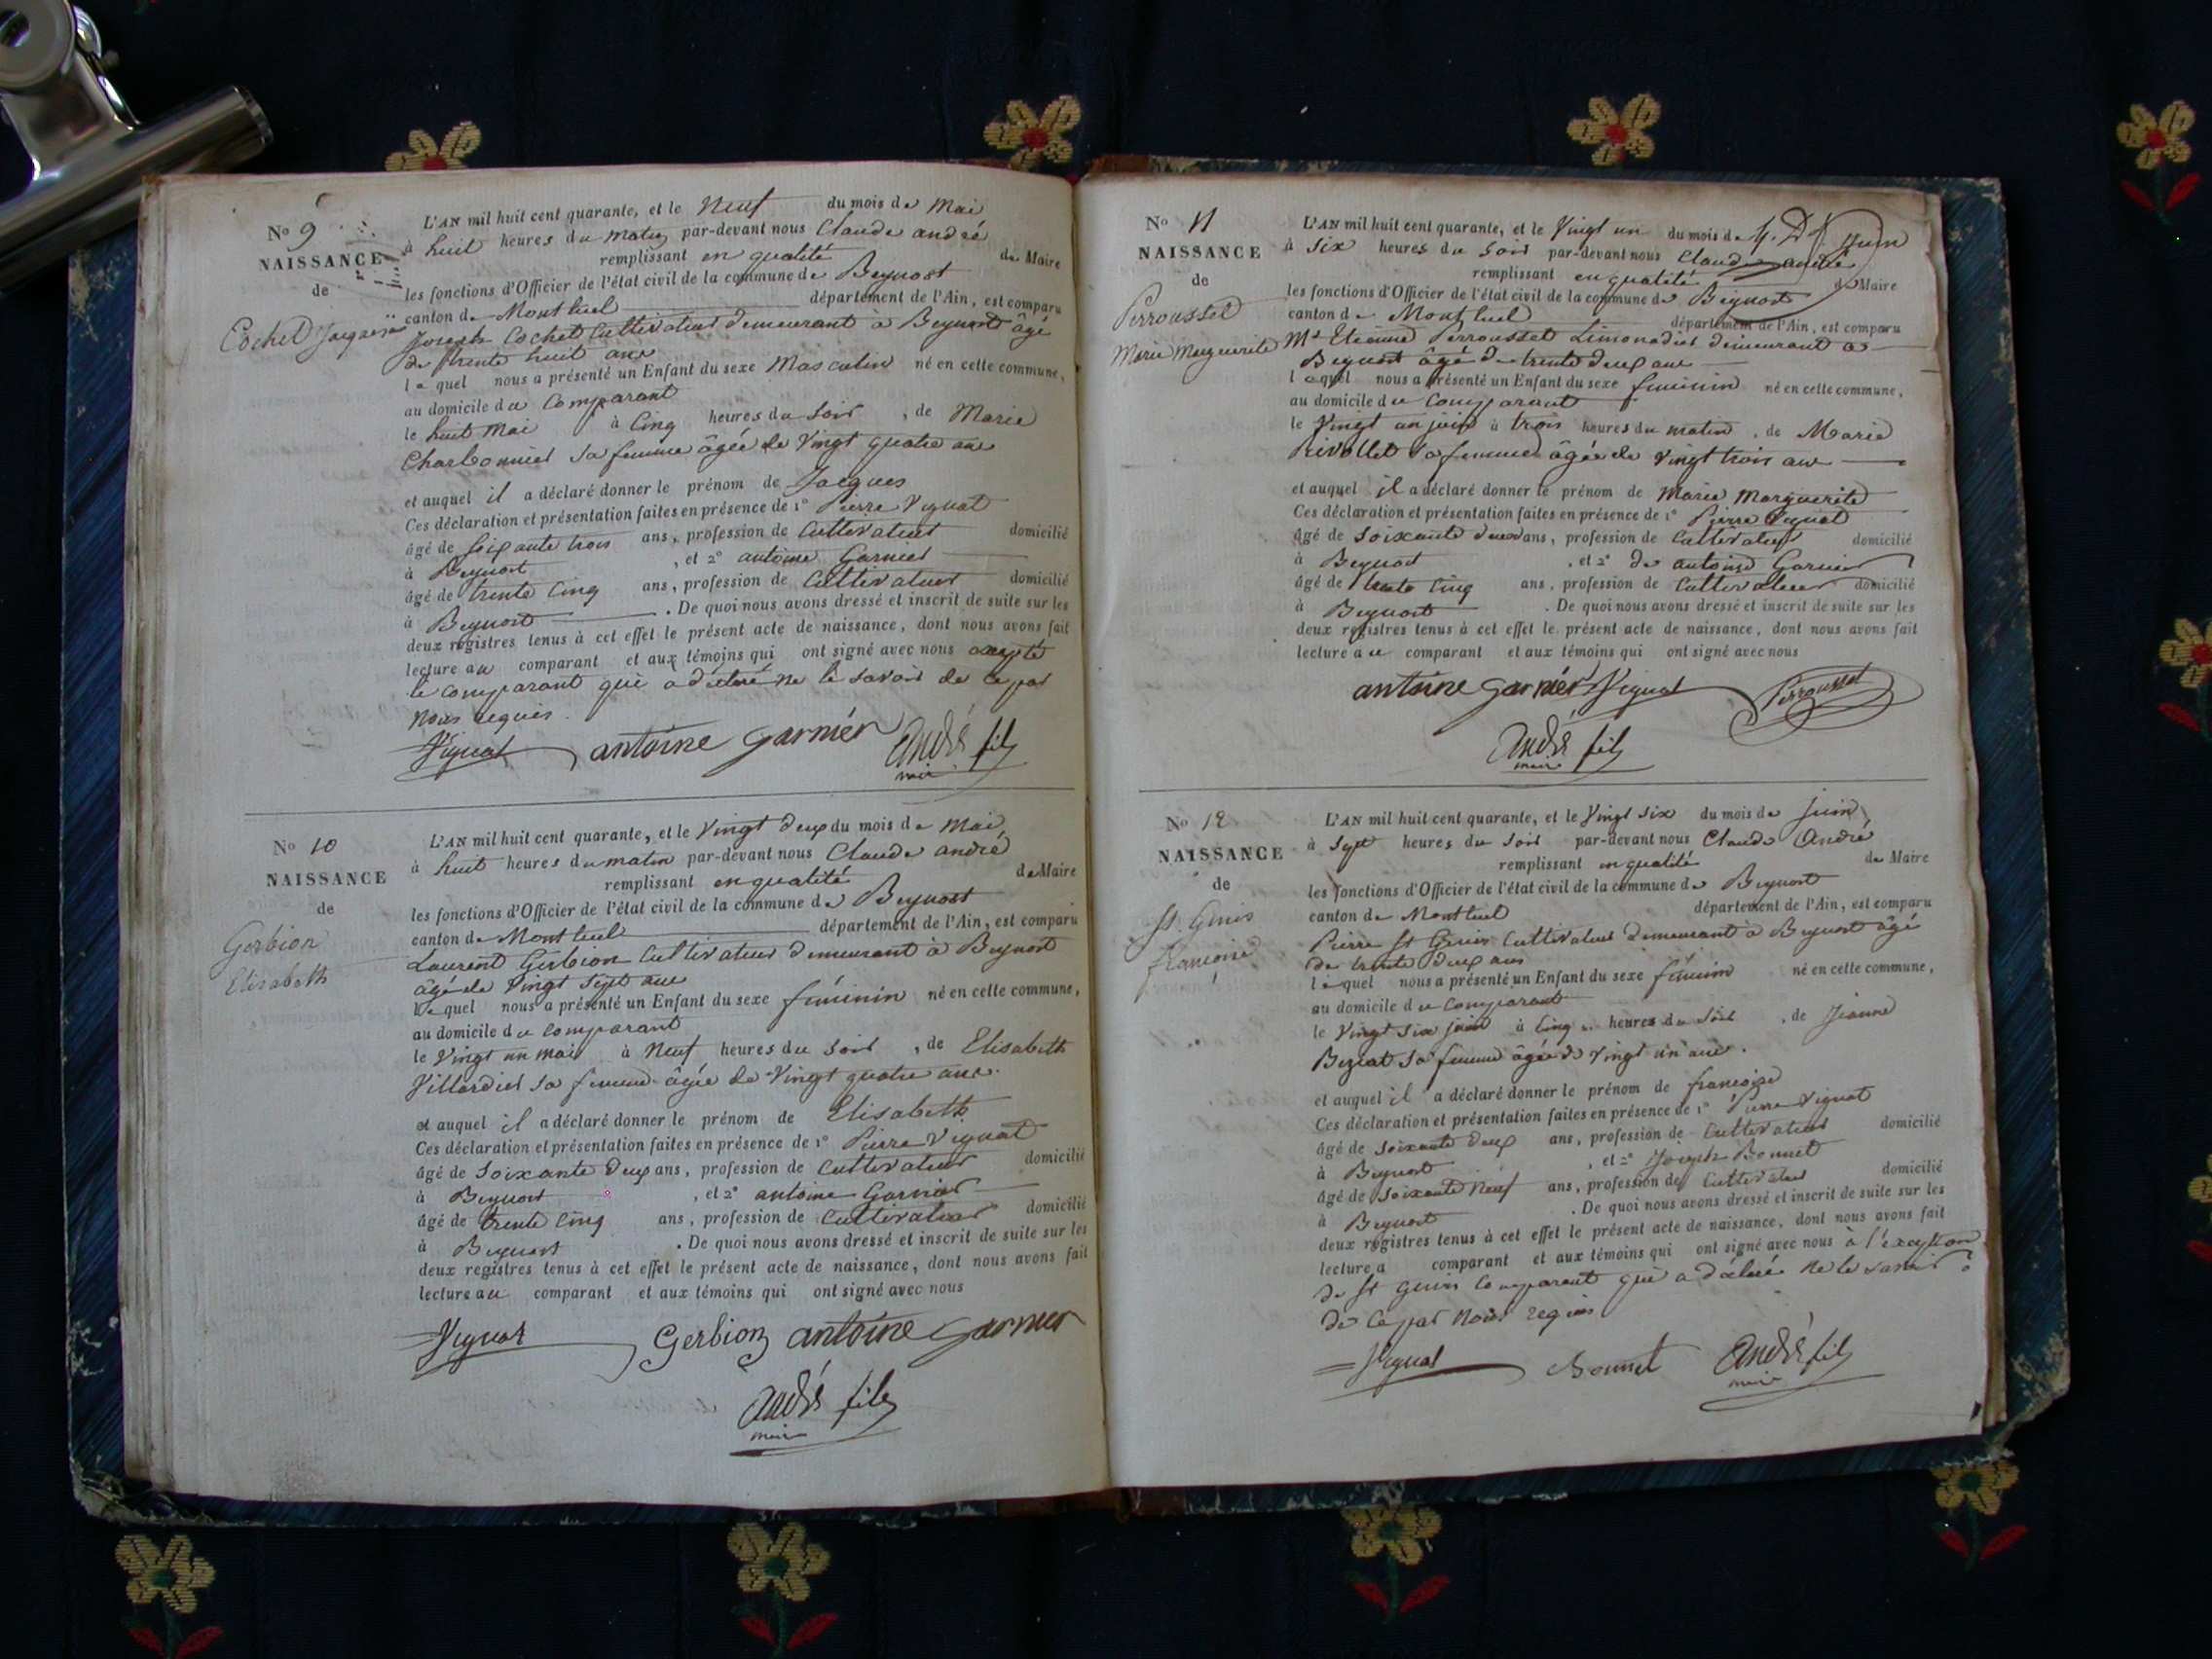 No 9
NAISSANCE
de
Cochet Jacques
L'AN mil huit cent quarante, et le Neuf du mois de Mai
à huit heures du matin par-devant nous Claude andré
remplissant en qualité de Maire
les fonctions d'Officier de l'état civil de la commune de Beynost
canton de Montluel département de l'Ain, est comparu
Joseph Cochet Cultivateur demeurant à Beynost âgé
de trente huit ans
lequel nous a présenté un Enfant du sexe Masculin né en cette commune,
au domicile du Comparant
le huit mai à Cinq heures du soir, de Marie
Charbonnier sa femme âgée de Vingt quatre ans
et auquel il a déclaré donner le prénom de Jacques
Ces déclaration et présentation faites en présence de 1° Pierre Vignat
âgé de soixante trois ans, profession de Cultivateur domicilié
à Beynost, et 2° antoine Garnier
âgé de trente Cinq ans, profession de Cultivateur domicilié
à Beynost. De quoi nous avons dressé et inscrit de suite sur les
deux registres tenus à cet effet le présent acte de naissance, dont nous avons fait
lecture au comparant et aux témoins qui ont signé avec nous excepté
le comparant qui a déclaré ne le savoir de ce par
nous requis.
Vignat antoine garnier André fils
maire
No 10
NAISSANCE
de
Gerbion
Elisabeth
L'AN mil huit cent quarante, et le Vingt deux du mois de Mai
à huit heures du matin par-devant nous Claude andré
remplissant en qualité de Maire
les fonctions d'Officier de l'état civil de la commune de Beynost
canton de Montluel département de l'Ain, est comparu
Laurent Gerbion Cultivateur demeurant à Beynost
âgé de Vingt Sept ans
lequel nous a présenté un Enfant du sexe féminin né en cette commune,
au domicile du comparant
le Vingt un mai à Neuf heures du soir, de Elisabeth
Villardier sa femme âgée de Vingt quatre ans.
et auquel il a déclaré donner le prénom de Elisabeth
Ces déclaration et présentation faites en présence de 1° Pierre Vignat
âgé de Soixante deux ans, profession de Cultivateur domicilié
à Beynost, et 2° antoine Garnier
âgé de trente Cinq ans, profession de Cultivateur domicilié
à Beynost. De quoi nous avons dressé et inscrit de suite sur les
deux registres tenus à cet effet le présent acte de naissance, dont nous avons fait
lecture au comparant et aux témoins qui ont signé avec nous
Vignat Gerbion antoine garnier
André fils
maire
No 11
NAISSANCE
de
Perrousset
Marie Marguerite
L'AN mil huit cent quarante, et le Vingt un du mois de Juin
à Six heures du Soir par-devant nous Claude andré
remplissant en qualité de Maire
les fonctions d'Officier de l'état civil de la commune de Beynost
canton de Montluel département de l'Ain, est comparu
Mr Etienne Perrousset Limonadier demeurant à
Beynost âgé de trente deux ans
lequel nous a présenté un Enfant du sexe feminin né en cette commune,
au domicile du Comparant
le Vingt un juin à trois heures du matin, de Marie
Rivollet sa femme âgée de vingt trois ans
et auquel il a déclaré donner le prénom de Marie Marguerite
Ces déclaration et présentation faites en présence de 1° Pierre Vignat
âgé de soixante deux ans, profession de Cultivateur domicilié
à Beynost, et 2° de antoine Garnier
âgé de trente Cinq ans, profession de Cultivateur domicilié
à Beynost. De quoi nous avons dressé et inscrit de suite sur les
deux registres tenus à cet effet le présent acte de naissance, dont nous avons fait
lecture au comparant et aux témoins qui ont signé avec nous
antoine garnier Vignat Perrousset
André fils
maire
No 12
NAISSANCE
de
St. Genis
françoise
L'AN mil huit cent quarante, et le Vingt six du mois de Juin
à Sept heures du Soir par-devant nous Claude André
remplissant en qualité de Maire
les fonctions d'Officier de l'état civil de la commune de Beynost
canton de Montluel département de l'Ain, est comparu
Pierre St Genis Cultivateur demeurant à Beynost âgé
de trente deux ans
lequel nous a présenté un Enfant du sexe féminin né en cette commune,
au domicile du comparant
le Vingt six juin à Cinq heures du Soir, de Jeanne
sa femme âgée de vingt un ans.
et auquel il a déclaré donner le prénom de françoise
Ces déclaration et présentation faites en présence de 1° Pierre Vignat
âgé de soixante deux ans, profession de Cultivateur domicilié
à Beynost, et 2° Joseph Bonnet
âgé de soixante Neuf ans, profession de Cultivateur domicilié
à Beynost. De quoi nous avons dressé et inscrit de suite sur les
deux registres tenus à cet effet le présent acte de naissance, dont nous avons fait
lecture a comparant et aux témoins qui ont signé avec nous à l'exception
de St genis Comparant qui a déclaré ne le savoir
de ce par nous requis
Vignat Bonnet André fils
maire